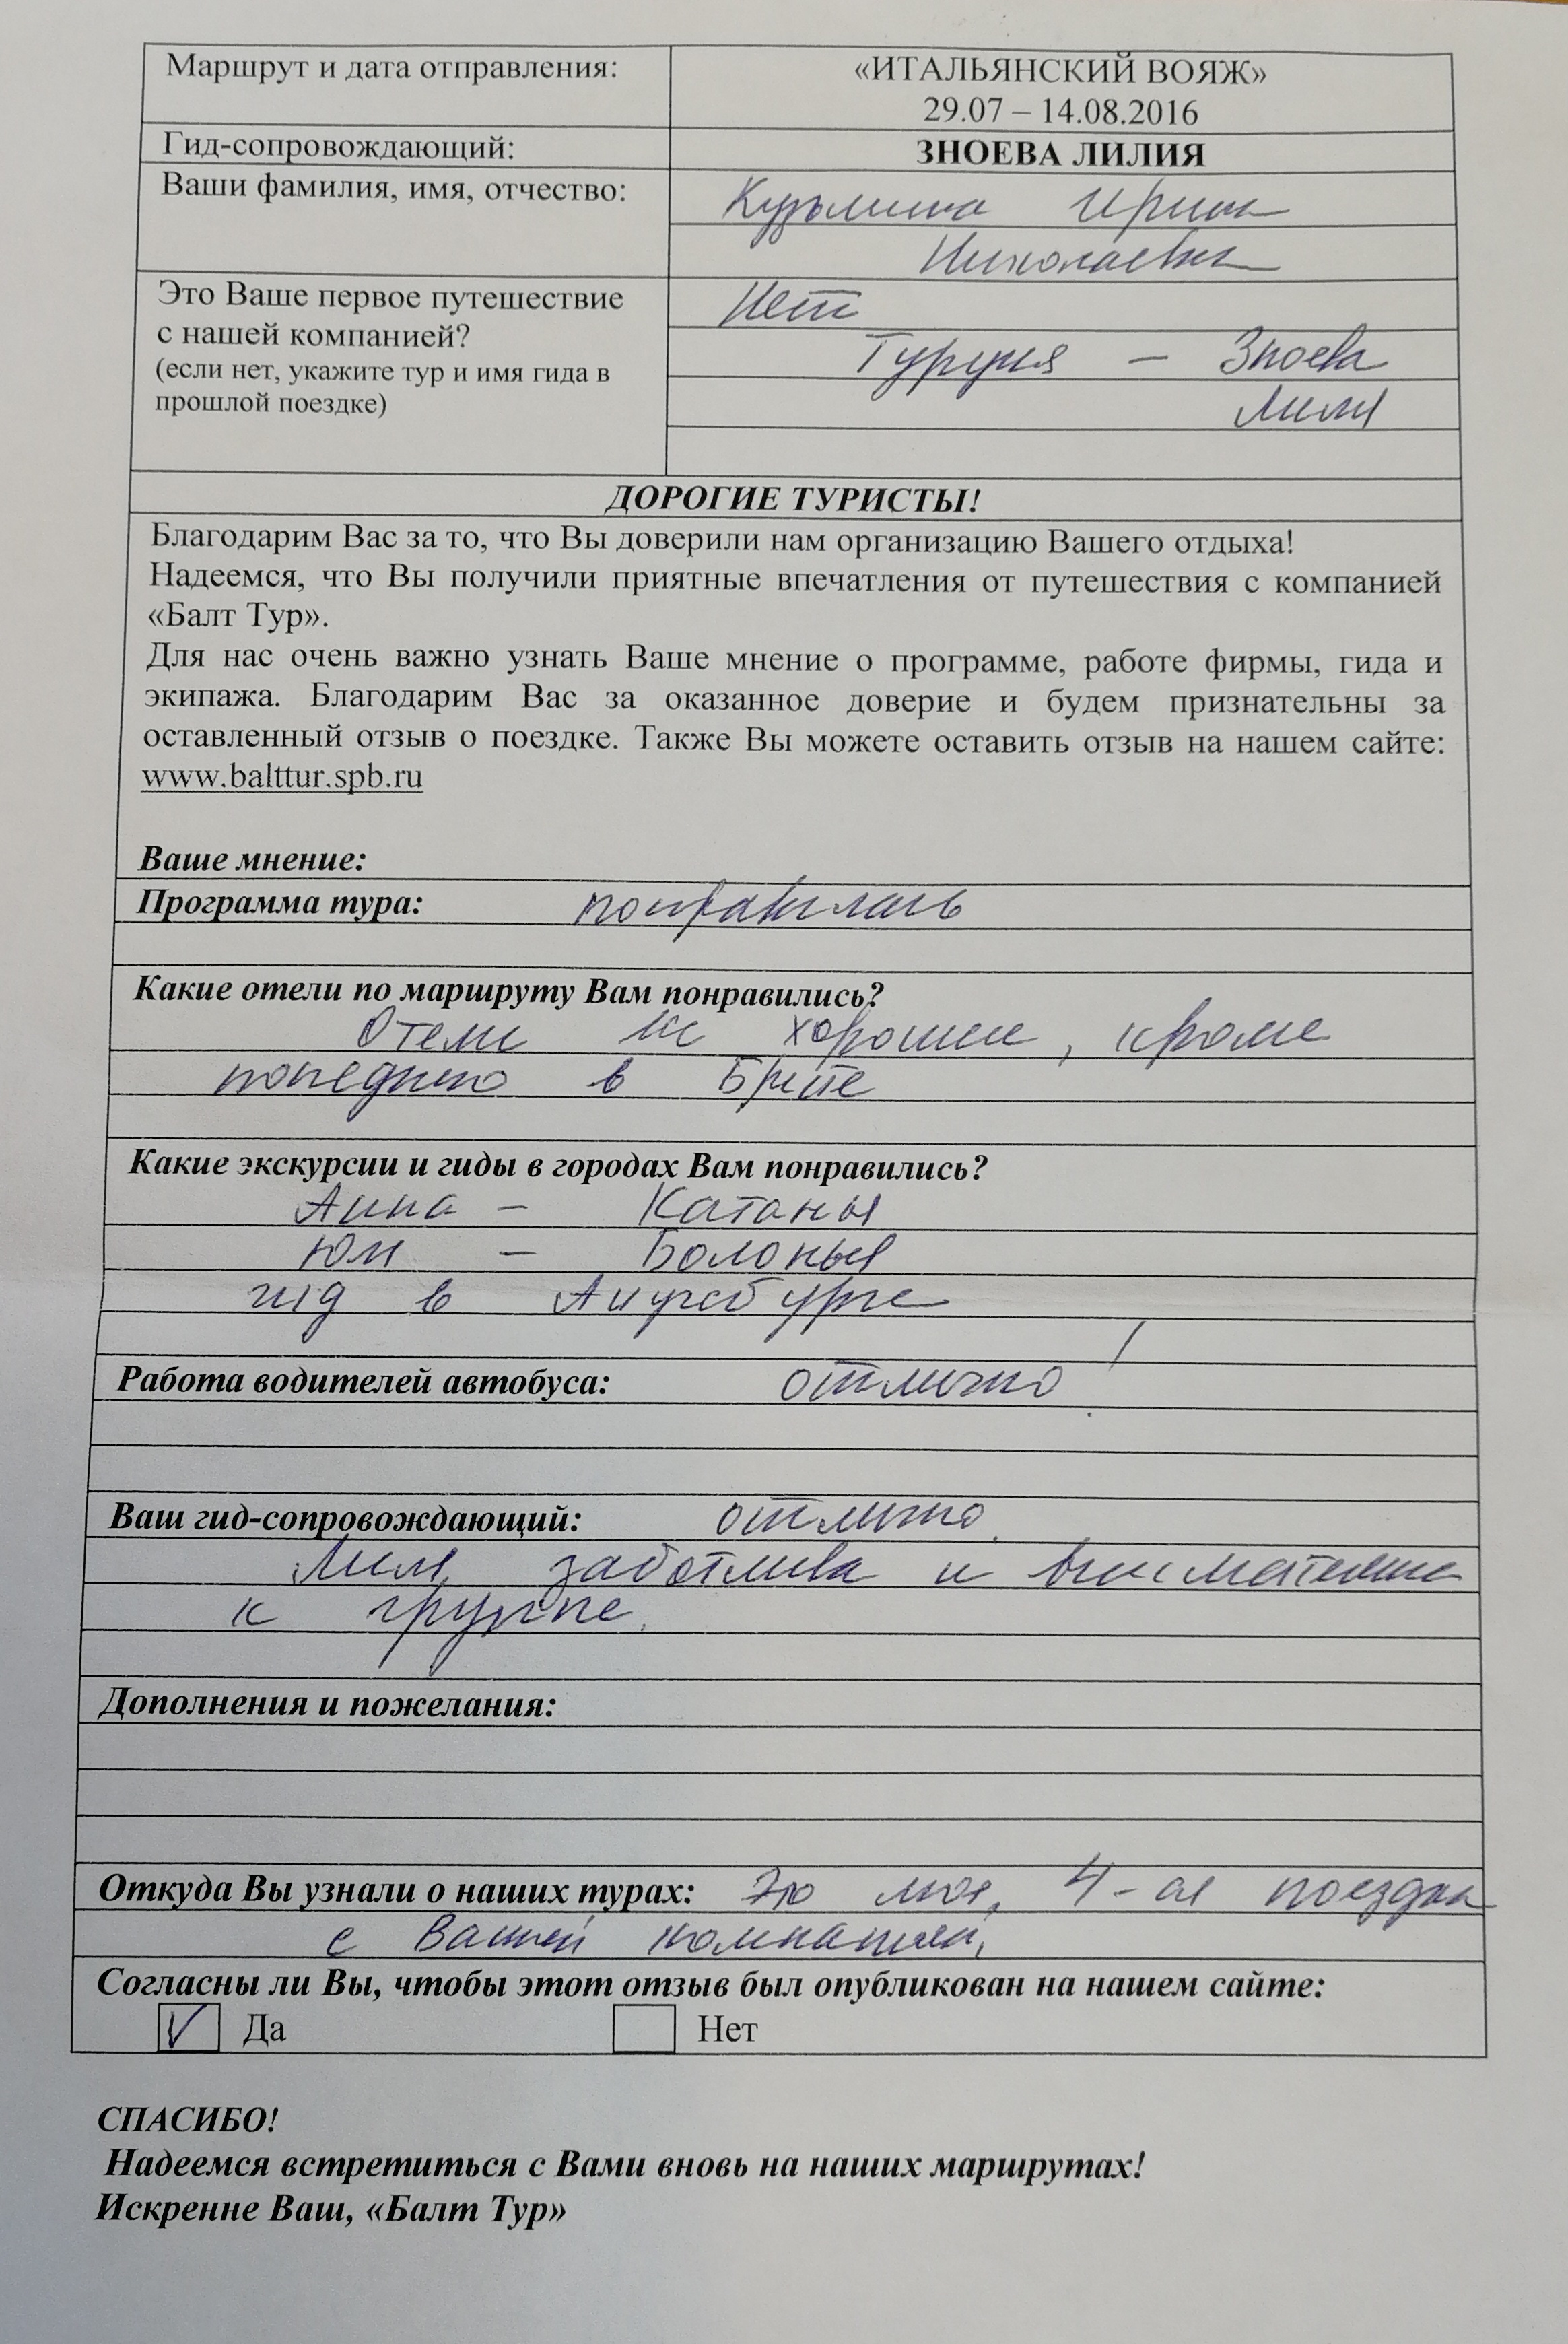 Маршрут и дата отправления:
«ИТАЛЬЯНСКИЙ ВОЯЖ»
29.07 – 14.08.2016
Гид-сопровождающий:
ЗНОЕВА ЛИЛИЯ
Ваши фамилия, имя, отчество:
Кузьмина Ирина
Николаевна
Это Ваше первое путешествие
с нашей компанией?
(если нет, укажите тур и имя гида в
прошлой поездке)
Нет
Турция – Зноева
Лилия
ДОРОГИЕ ТУРИСТЫ!
Благодарим Вас за то, что Вы доверили нам организацию Вашего отдыха!
Надеемся, что Вы получили приятные впечатления от путешествия с компанией
«Балт Тур».
Для нас очень важно узнать Ваше мнение о программе, работе фирмы, гида и
экипажа. Благодарим Вас за оказанное доверие и будем признательны за
оставленный отзыв о поездке. Также Вы можете оставить отзыв на нашем сайте:
www.balttur.spb.ru
Ваше мнение:
Программа тура: понравилась
Какие отели по маршруту Вам понравились?
Отели все хорошие, кроме
последнего в Бресте
Какие экскурсии и гиды в городах Вам понравились?
Анна – Катанья
Юля – Болонья
гид в Аугсбурге
Работа водителей автобуса: отлично!
Ваш гид-сопровождающий: отлично.
Лиля заботлива и внимательна
к группе.
Дополнения и пожелания:
Откуда Вы узнали о наших турах: Это моя 4-ая поездка
с Вашей компанией.
Согласны ли Вы, чтобы этот отзыв был опубликован на нашем сайте:
V Да Нет
СПАСИБО!
Надеемся встретиться с Вами вновь на наших маршрутах!
Искренне Ваш, «Балт Тур»